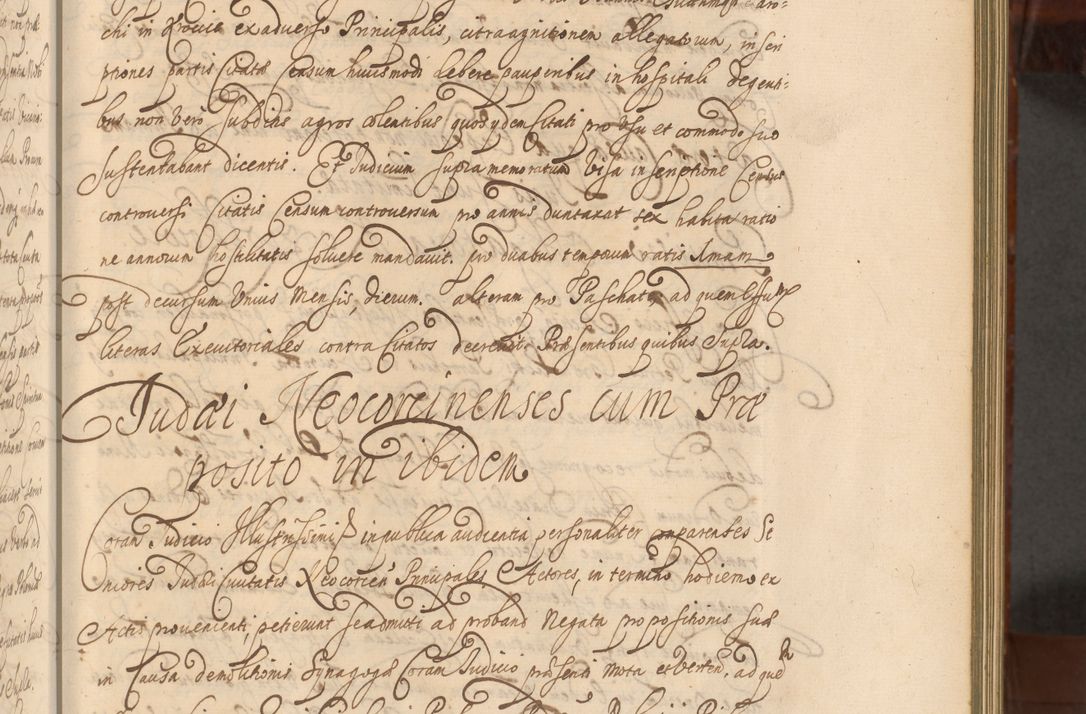 chi in Krocice ex adverso Principalis, citra agnitionem allegatorum, inscri
ptiones partis Citatæ Censum huiusmodi debere pauperibus in hospitali degenti
bus non vero Subditis agros colentibus quos ydem Citati pro Usu et commodo suo
Sustentabant dicentis. Et Judicium supra memoratum Visa inscriptione Census
controversi Citatis Censum controversum pro annis duntaxat sex habita ratio
ne annorum hostilitatis solvere mandavit. pro duabus temporum ratis Imam
post decursum Unius Mensis, dierum. alteram pro Paschate, ad quem Effum
literas Executoriales contra Citatos decrevit. Præsentibus quibus Supla.
Judæi Neocorcinenses cum Præ
posito in ibidem
Coram Judicio Illustrissimi in publica audientia personaliter comparentes Se
niores Judæi Civitatis Neocorcien Principales Actores, in termino hodierno ex
Actis provenienti, petierunt se admitti ad proband Negata propositionis suæ
in Causa demolitionis Synagogæ Coram Judicio præsenti mota et verten, ad que